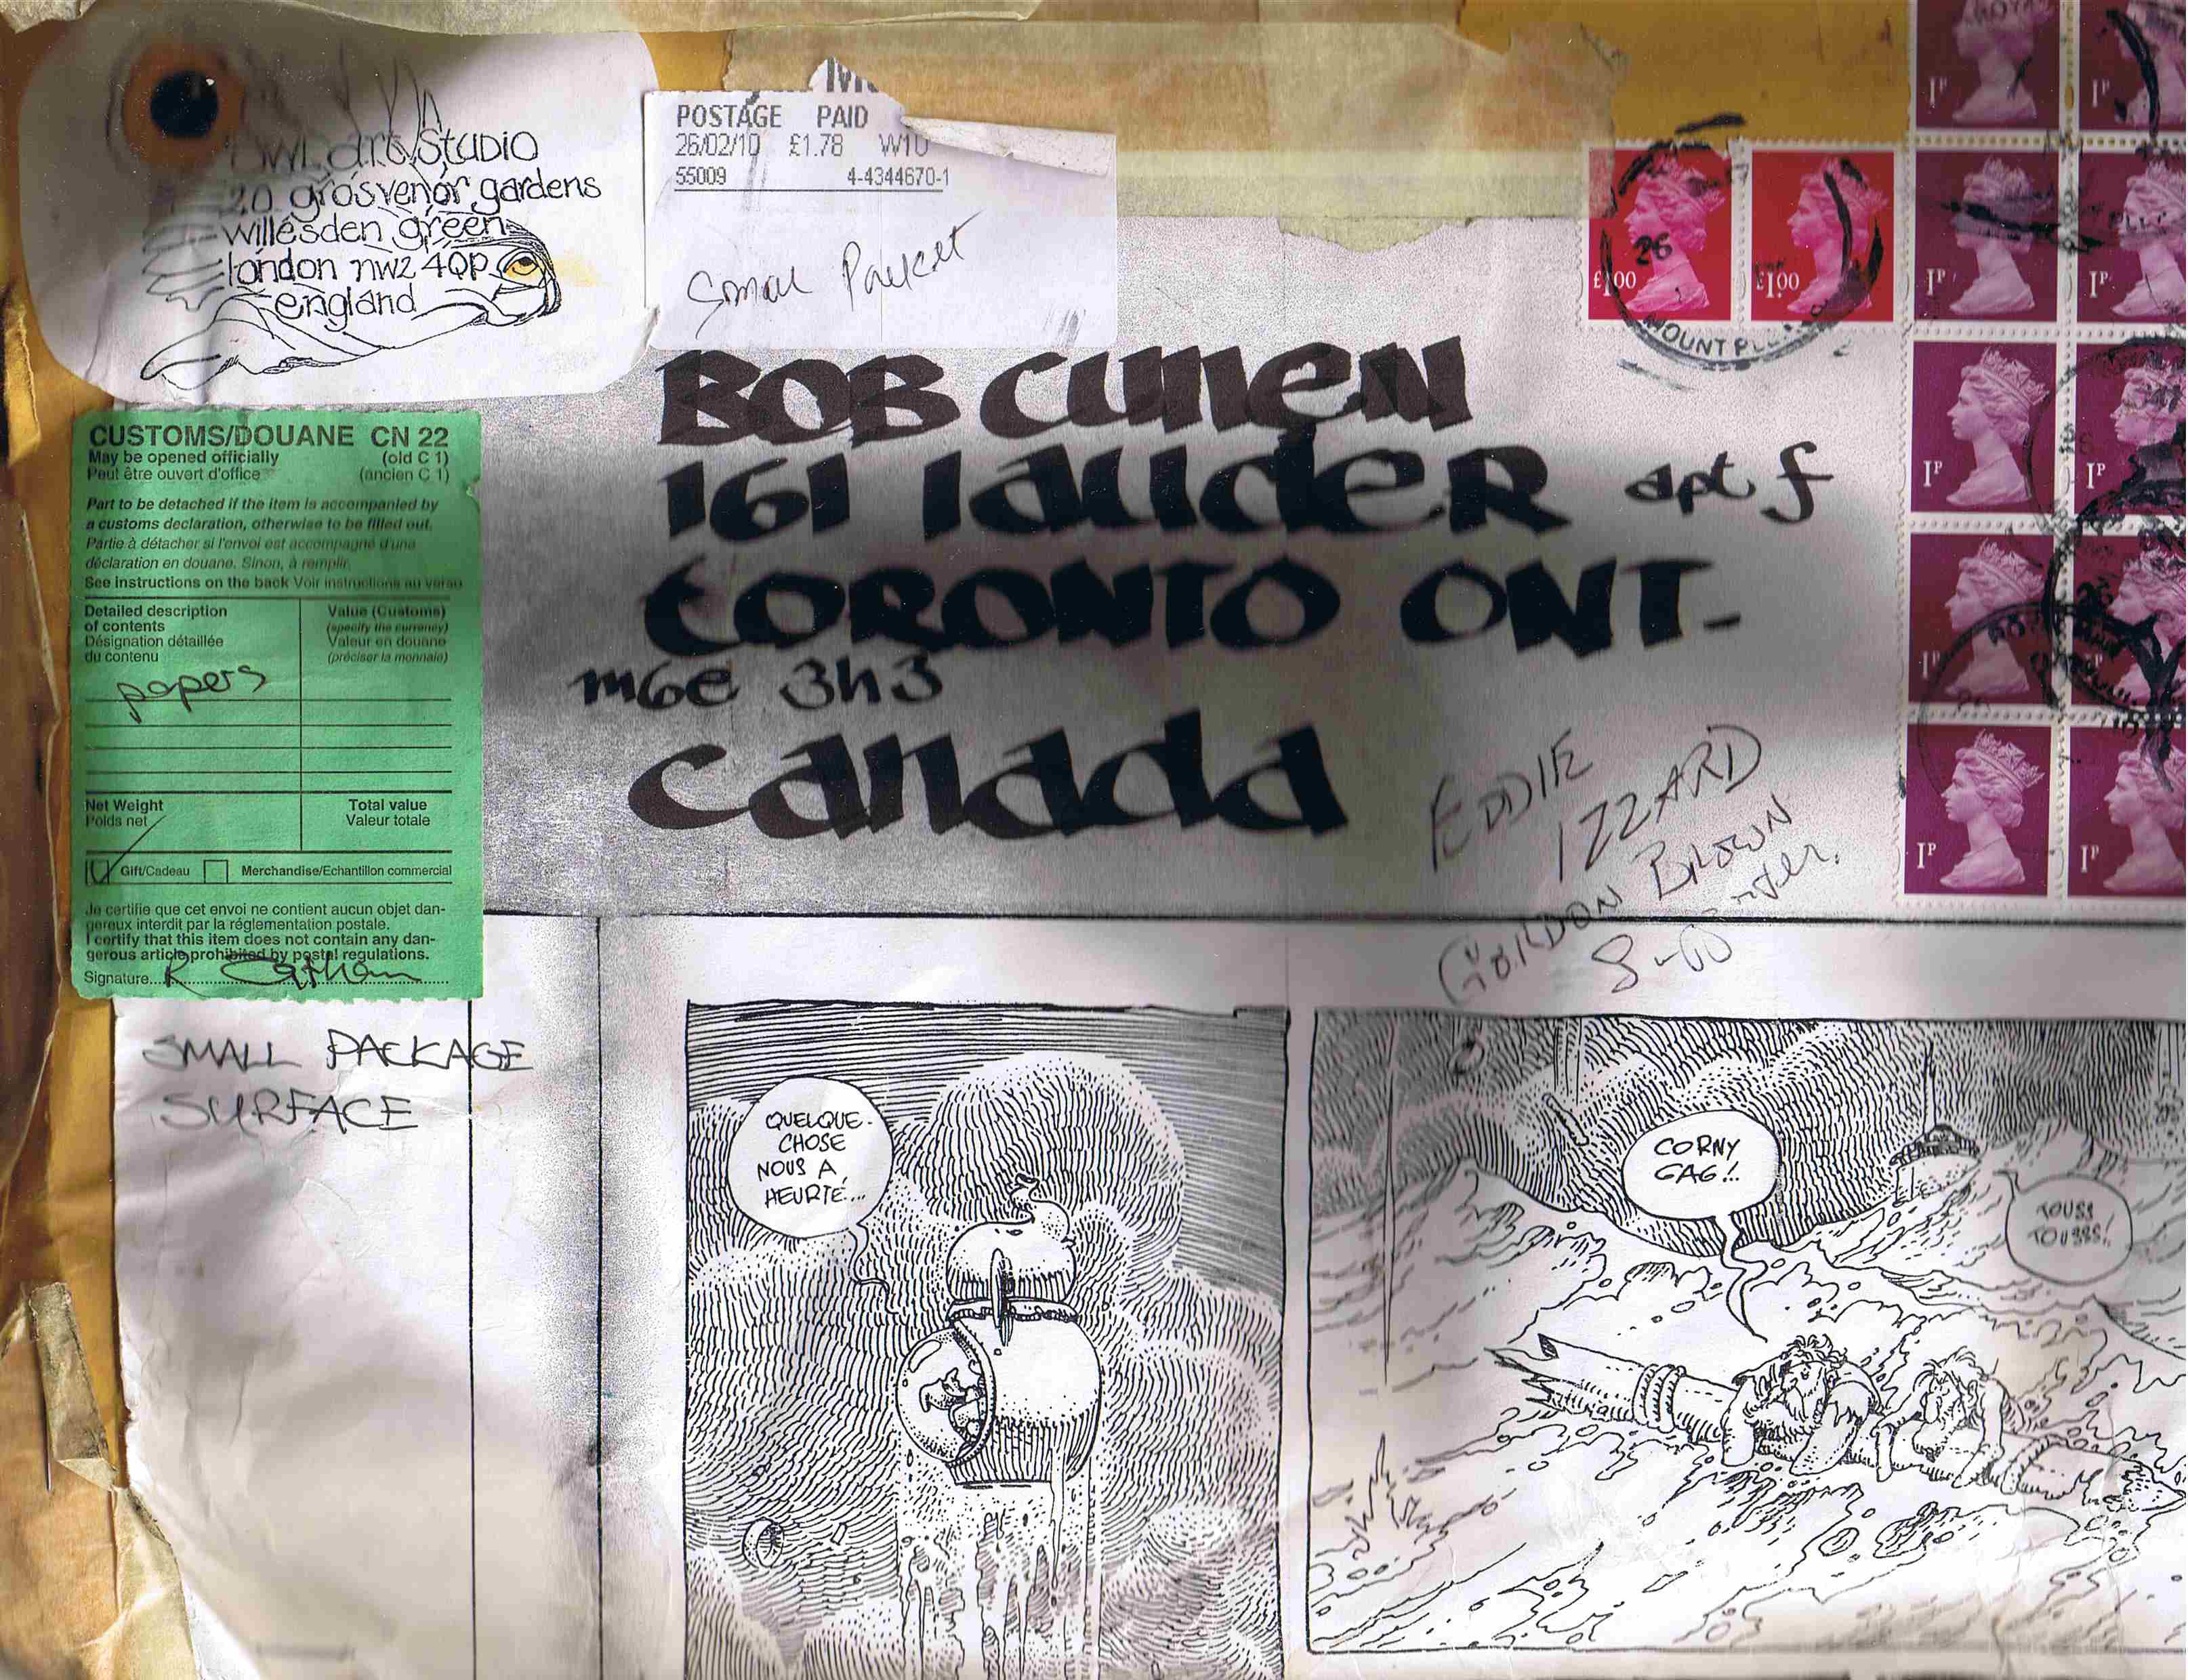 art Studio
20 grosvenor gardens
willesden green
london nw2 4QP
england
POSTAGE PAID
26/02/10 £1.78 W1U
55009 4-4344670-1
Small Packet
£1.00
£1.00
26
MOUNT
1P
1P
1P
1P
1P
1P
1P
1P
1P
BOB CUNEN
161 lauder apt f
toRONTO ONT-
m6e 3h3
canada
EDDIE
IZZARD
GORDON BROWN
CUSTOMS/DOUANE CN 22
May be opened officially (old C 1)
Peut être ouvert d'office (ancien C 1)
Part to be detached if the item is accompanied by
a customs declaration, otherwise to be filled out.
Partie à détacher si l'envoi est accompagné d'une
déclaration en douane. Sinon, à remplir.
See instructions on the back Voir instructions au verso
Detailed description
of contents
Désignation détaillée
du contenu
Value (Customs)
(specify the currency)
Valeur en douane
(préciser la monnaie)
papers
Net Weight
Poids net
Total value
Valeur totale
Gift/Cadeau Merchandise/Echantillon commercial
Je certifie que cet envoi ne contient aucun objet dan-
gereux interdit par la réglementation postale.
I certify that this item does not contain any dan-
gerous article prohibited by postal regulations.
Signature
SMALL PACKAGE
SURFACE
QUELQUE.
CHOSE
NOUS A
HEURTÉ...
CORNY
GAG!..
TOUSS
TOUSSS!..